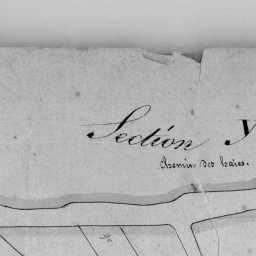 Section Y
Chemin des haies.